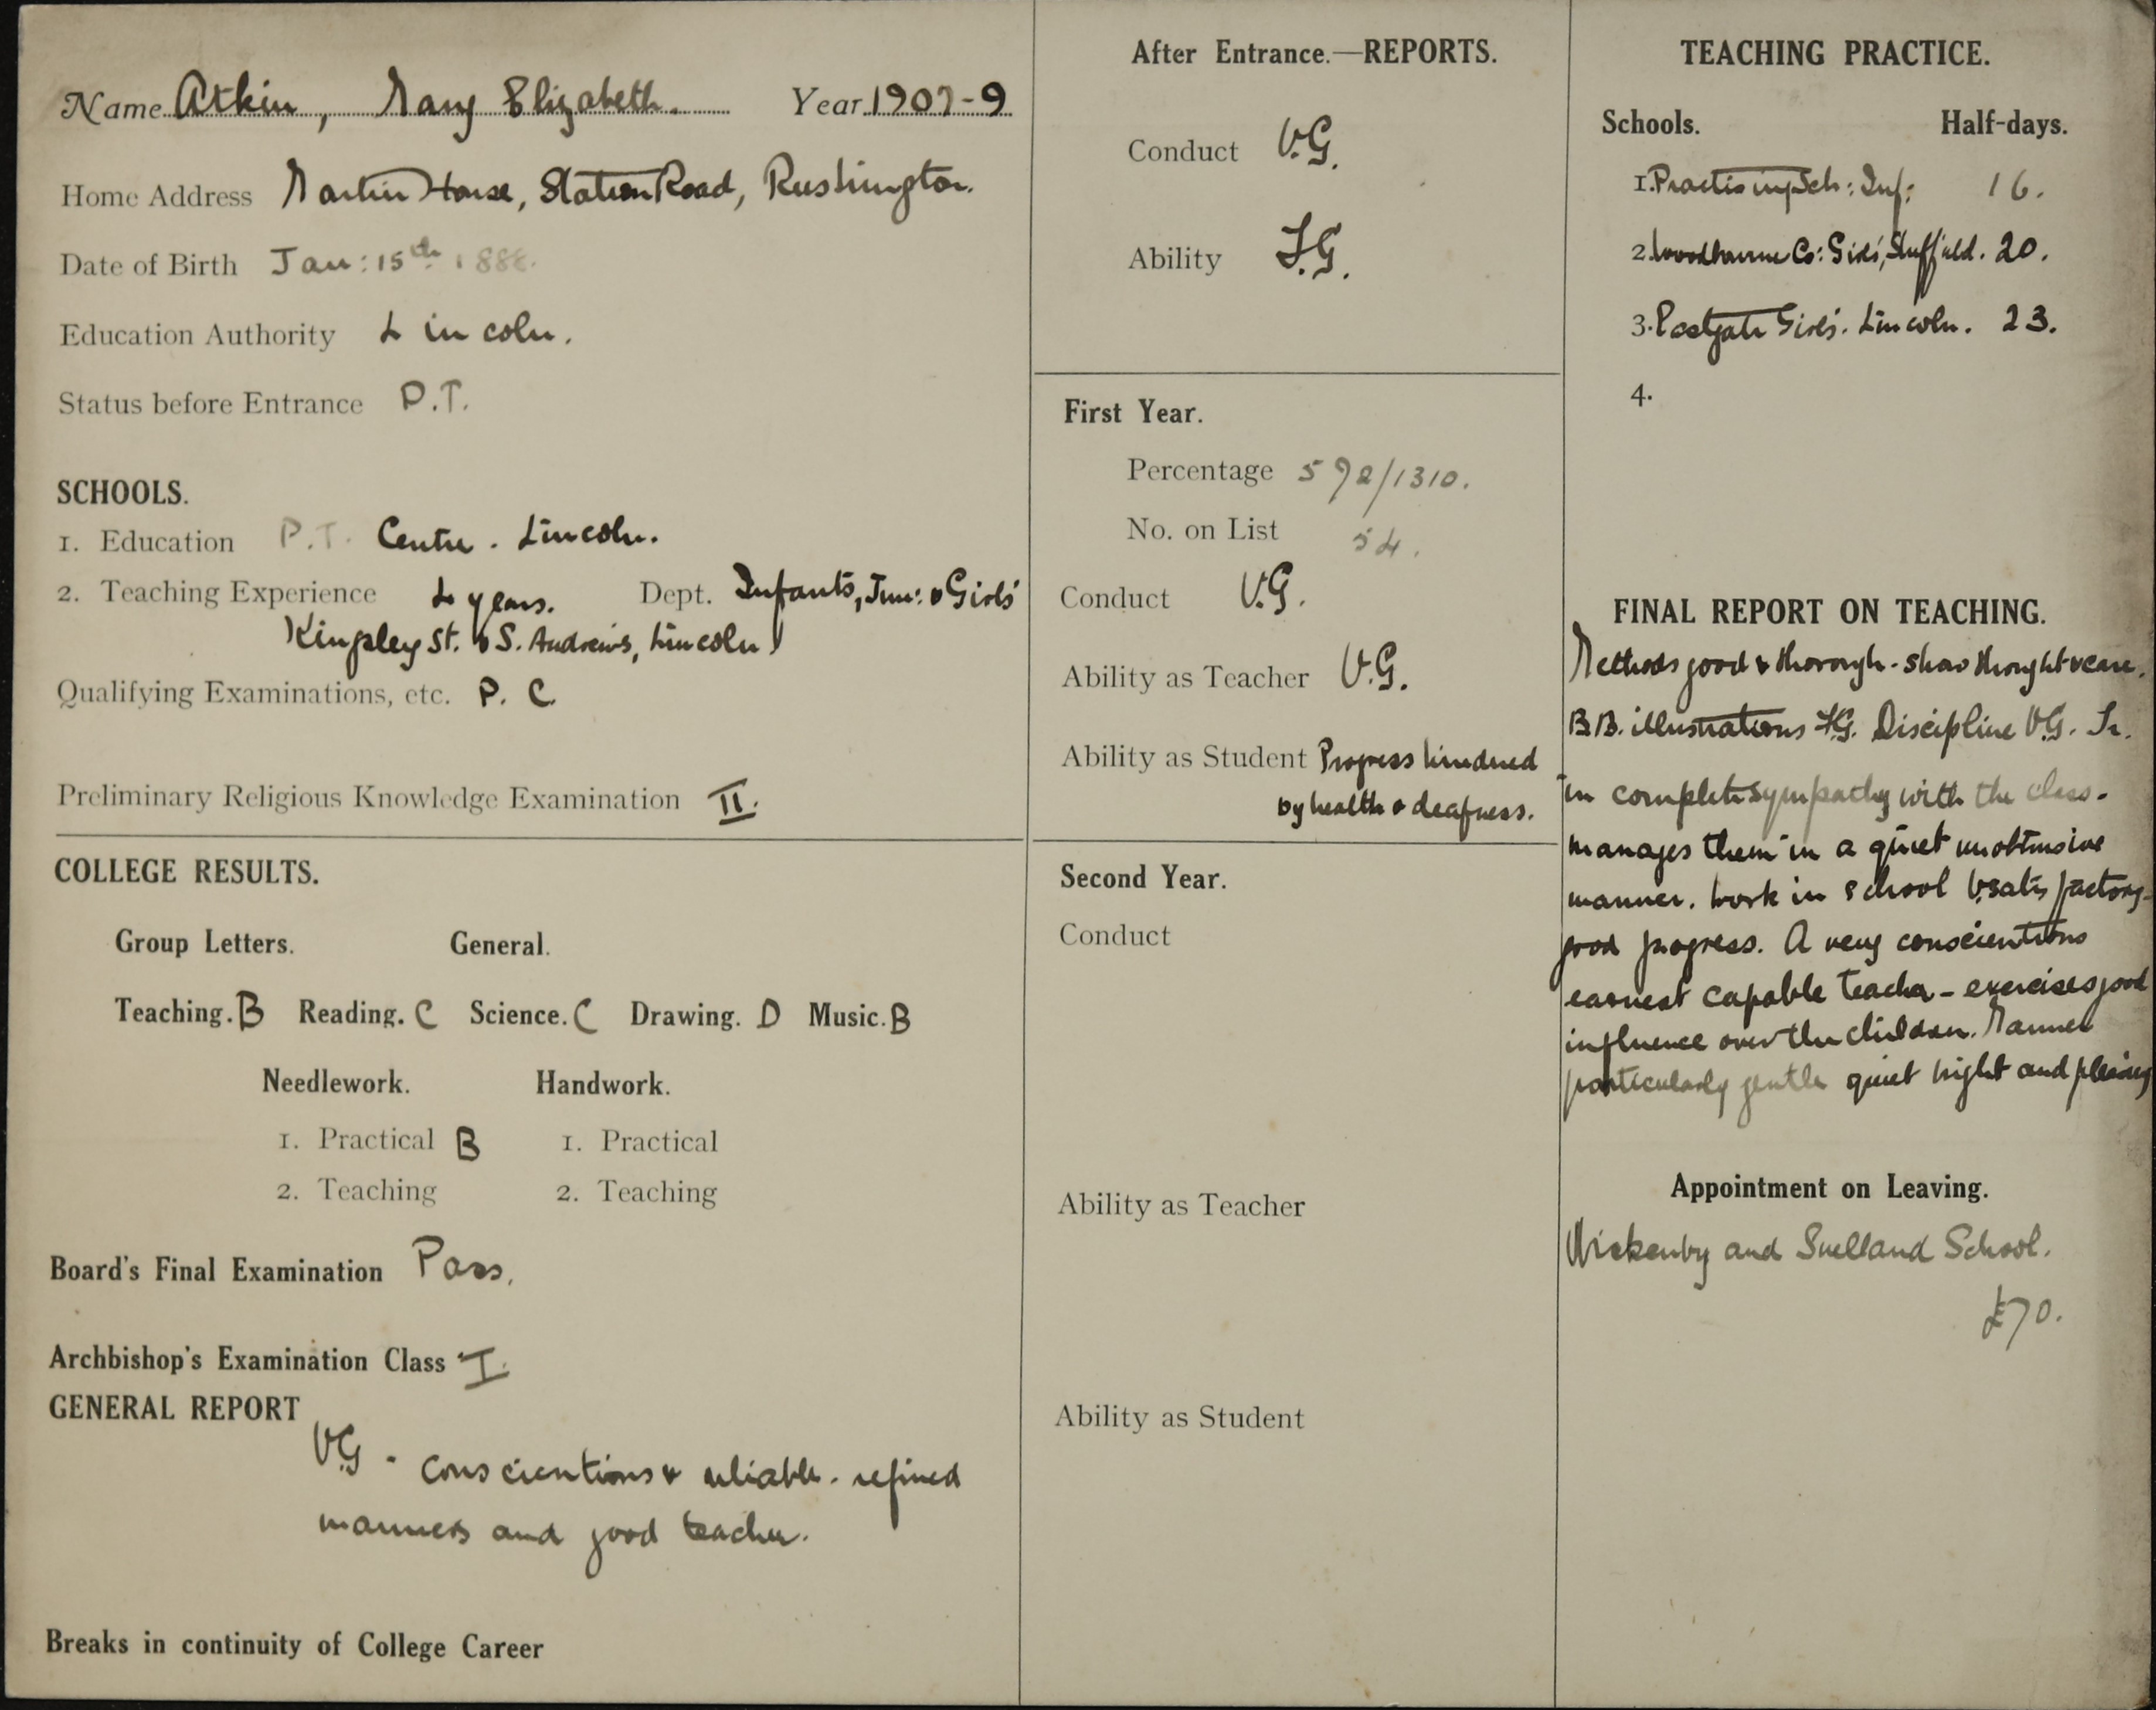 Name Atkin, Mary Elizabeth. Year 1907-9
Home Address Martin House, Station Road, Ruskington.
Date of Birth Jan: 15th 1888.
Education Authority Lincoln.
Status before Entrance P.T.
SCHOOLS.
1. Education P.T. Centre. Lincoln.
2. Teaching Experience 4 years. Dept. Infants, Jun: & Girls'
Kingsley St. & S. Andrew's, Lincoln)
Qualifying Examinations, etc. P. C.
Preliminary Religious Knowledge Examination II.
COLLEGE RESULTS.
Group Letters. General.
Teaching. B Reading. C Science. C Drawing. D Music. B
Needlework. Handwork.
1. Practical B 1. Practical
2. Teaching 2. Teaching
Board's Final Examination Pass.
Archbishop's Examination Class I.
GENERAL REPORT
V.G - conscientious & reliable. refined
manners and good teacher.
Breaks in continuity of College Career
After Entrance.—REPORTS.
Conduct V.G.
Ability F.G.
First Year.
Percentage 592/1310.
No. on List 54.
Conduct V.G.
Ability as Teacher V.G.
Ability as Student Progress hindered
by health & deafness.
Second Year.
Conduct
Ability as Teacher
Ability as Student
TEACHING PRACTICE.
Schools. Half-days.
1. Practising Sch: Inf: 16.
2. Co: Girls', Sheffield. 20.
3. Girls'. Lincoln. 23.
4.
FINAL REPORT ON TEACHING.
Methods good & thorough - show thought & care.
B.B. illustrations F.G. Discipline V.G. Is
in complete sympathy with the class.
manages them in a quiet unobtrusive
manner. Work in school V. satisfactory -
good progress. A very conscientious
earnest capable teacher - exercises good
influence over the children. Manner
particularly gentle quiet bright and pleasing
Appointment on Leaving.
Wickenby and Snelland School.
£70.